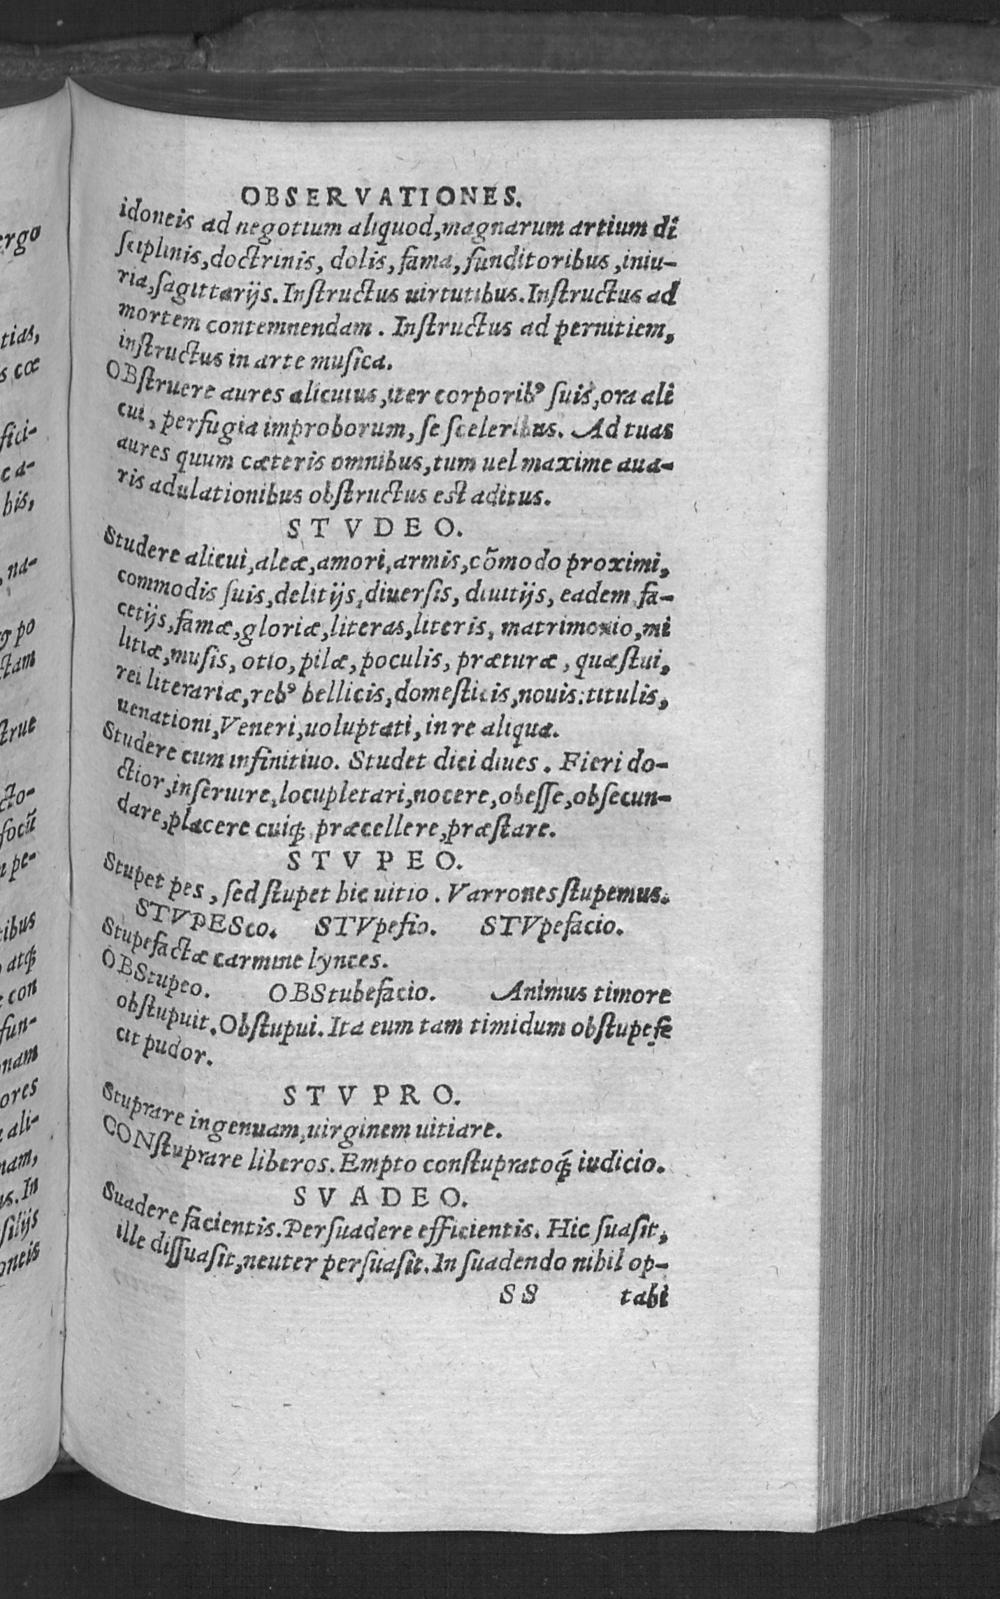 OBSERVATIONES.
idoneis ad negotium aliquod, magnarum artium di
sciplinis, doctrinis, dolis, fama, funditoribus, iniu-
ria, sagittarijs. Instructus uirtutibus. Instructus ad
mortem contemnendam. Instructus ad pernitiem,
instructus in arte musica.
OBstruere aures alicuius, iter corporibꝰ suis, ora ali
cui, perfugia improborum, se sceleribus. Ad tuas
aures quum cæteris omnibus, tum uel maxime aua-
ris adulationibus obstructus est aditus.
STVDEO.
Studere alicui, aleæ, amori, armis, cõmodo proximi,
commodis suis, delitijs, diuersis, diuitijs, eadem, fa-
cetijs, famæ, gloriæ, literas, literis, matrimonio, mi
litiæ, musis, otio, pilæ, poculis, præturæ, quæstui,
rei literariæ, rebꝰ bellicis, domesticis, nouis: titulis,
uenationi, Veneri, uoluptati, in re aliqua.
Studere cum infinitiuo. Studet dici diues. Fieri do-
ctior, inseruire, locupletari, nocere, obesse, obsecun-
dare, placere cuiqꝫ præcellere, præstare.
STVPEO.
Stupet pes, sed stupet hic uitio. Varrones stupemus.
STVPESco. STVpefio. STVpefacio.
Stupefactæ carmine lynces.
OBStupeo. OBStubefacio. Animus timore
obstupuit. Obstupui. Ita eum tam timidum obstupefe
cit pudor.
STVPRO.
Stuprare ingenuam, uirginem uitiare.
CONstuprare liberos. Empto constupratoqꝫ́ iudicio.
SVADEO.
Suadere facientis. Persuadere efficientis. Hic suasit,
ille dissuasit, neuter persuasit. In suadendo nihil op-
SS tabi
ergo
tias,
s cœ
fici-
ca-
bis,
, na-
po
ctam
strue
cto-
focũ
n pe-
tibus
atqꝫ
con
fun-
nam
ores
ali-
nam,
us. In
silijs
oneis